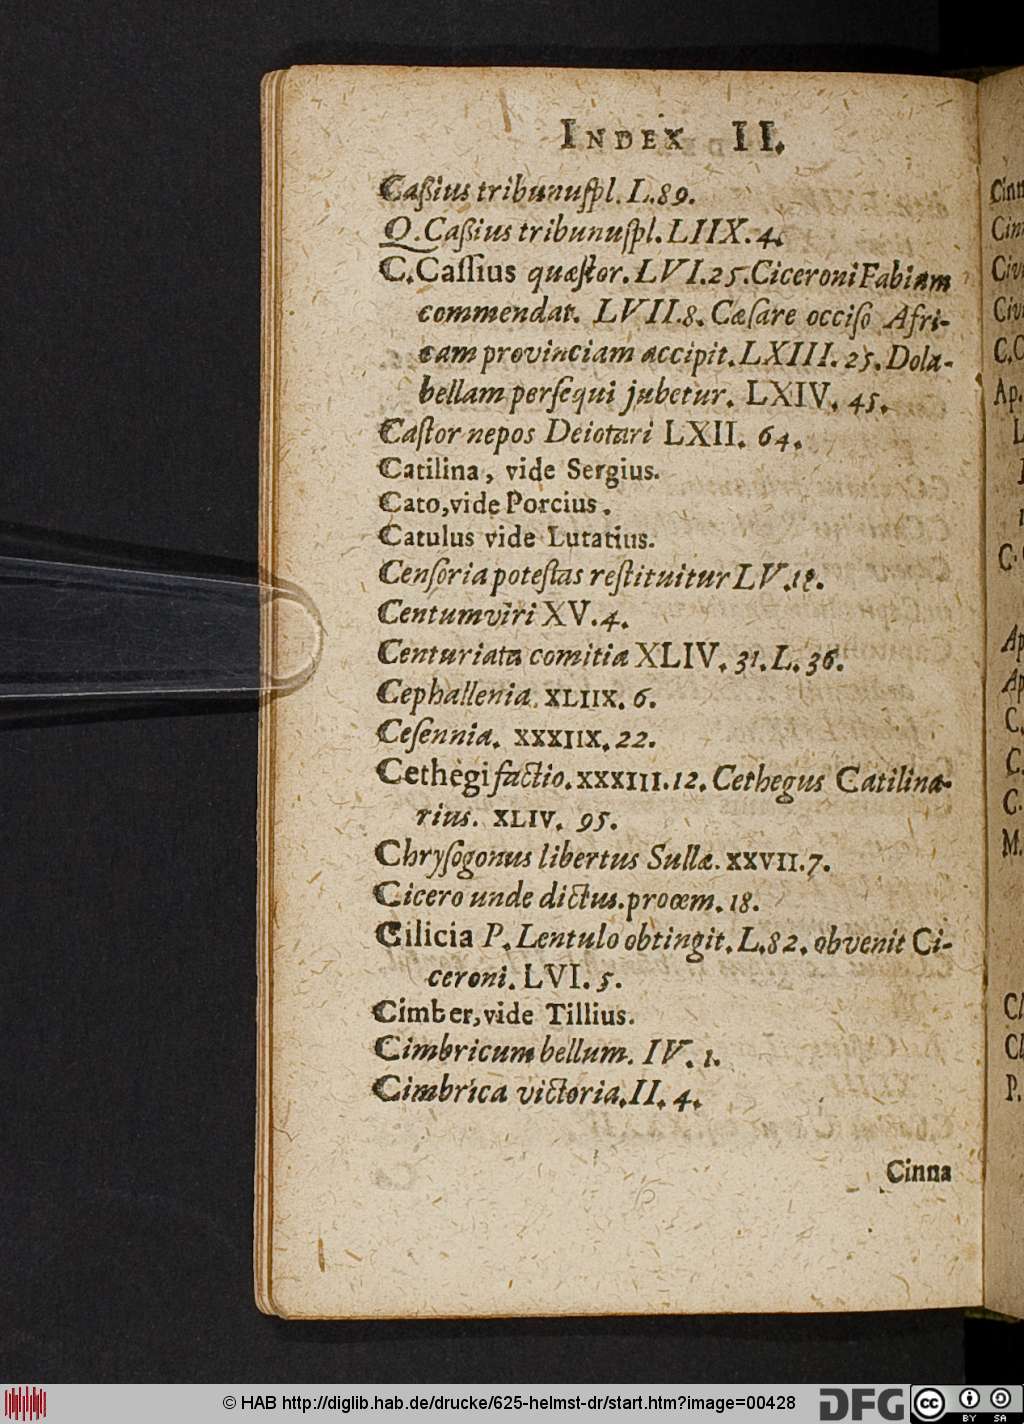 INDEX II.
Caßius tribunuſpl. L.89.
Q. Caßius tribunuſpl. LIIX. 4.
C. Caſſius quæſtor. LVI.25. Ciceroni Fabium
commendat. LVII.8. Cæſare occiſo Afri-
cam provinciam accipit. LXIII. 25. Dola-
bellam perſequi jubetur. LXIV. 45.
Caſtor nepos Deiotari LXII. 64.
Catilina, vide Sergius.
Cato, vide Porcius.
Catulus vide Lutatius.
Cenſoria poteſtas reſtituitur LV.
Centumviri XV. 4.
Centuriata comitia XLIV. 31. L. 36.
Cephallenia. XLIIX. 6.
Ceſennia. XXXIIX. 22.
Cethegi factio. XXXIII. 12. Cethegus Catilina-
rius. XLIV. 95.
Chryſogonus libertus Sullæ. XXVII. 7.
Cicero unde dictus. proœm. 18.
Cilicia P. Lentulo obtingit. L.82. obvenit Ci-
ceroni. LVI. 5.
Cimber, vide Tillius.
Cimbricum bellum. IV. 1.
Cimbrica victoria. II. 4.
Cinna
© HAB http://diglib.hab.de/drucke/625-helmst-dr/start.htm?image=00428
DFG
cc BY SA